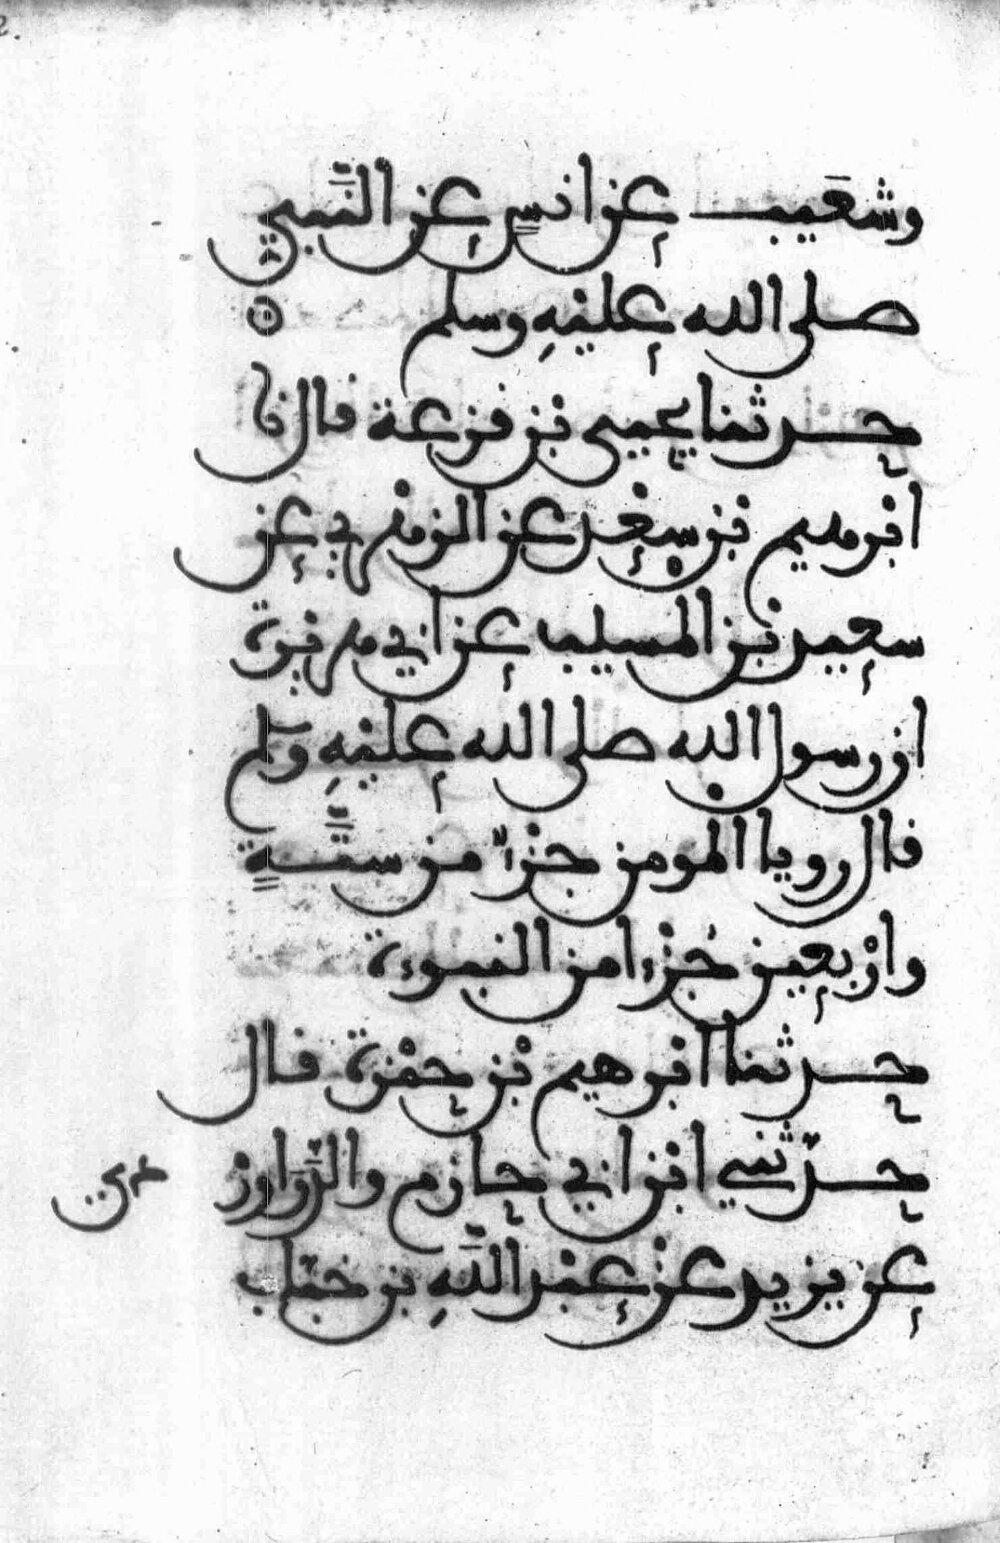 وشعيب عن انسٍ عن النَّبي
صلى الله عليه وسلم
حدثنا يحيى بن قزعة قال نا
ابرهيم بن سعْد عن الزهري عن
سعيد بن المسيب عن ابي هريرة
ان رسول الله صلى الله عليهِ وسلم
قال رويا المومن جزْءٌ من ستَّةٍ
وارْبعين جُزْءا من النبوءة
حدثنا ابرهيم بْن حمْزة قال
حدّثني ابن ابي حازم والدَّراورْ
دي
عن يزيد عنْ عبْد اللَّهِ بن خبّاب